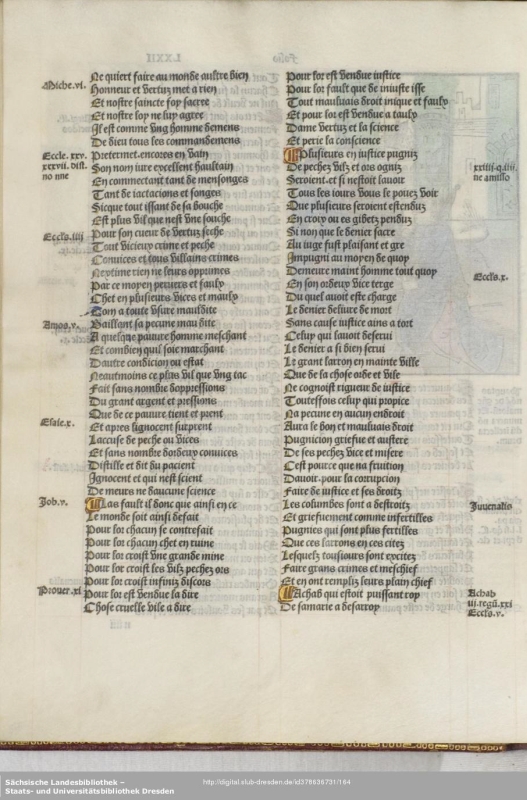 Ne quiert faire au monde aultre bien
Miche. vi.
Honneur et vertuz met a rien
Et nostre saincte foy sacree
Et nostre loy ne luy agree
Il est comme vng homme demens
De dieu tous les commandemens
Eccle. xxv.
Pretermet. encores en vain
xxxvii. dist.
Son nom iure excellent haultain
no nne
En commectant tant de mensonges
Tant de iactacions et songes
Sicque tout issant de sa bouche
Est plus vil que nest vne souche
Eccls. iiii
Pour son cueur de vertuz seche
Tout vicieux crime et peche
Conuices et tous villains crimes
Neptime rien ne leurs opprimes
Par ce moyen peruers et faulx
Chet en plusieurs vices et maulx
Com a toute vsure mauldite
Amos. v.
Baillant sa pecune mau dite
A quelque pauure homme meschant
Et combien quil soie marchant
Daultre condicion ou estat
Neautmoins ce plus vil que vng iac
Fait sans nombre doppressions
Du grant argent et pressions
Que de ce pauure tient et prent
Esaie. x.
Et apres lignocent surprent
Laccuse de peche ou vices
Et sans nombre dordeux conuices
Distille et dit du pacient
Ignocent et qui nest scient
De meurs ne daucune science
Job. v.
Las fault il donc que ainsi en ce
Le monde soit ainsi defait
Pour lor chacun se contrefait
Pour lor chacun chet en ruine
Pour lor croist vne grande mine
Pour lor croist les vilz pechez ors
Pour lor croist infiniz discors
Prouer. xi
Pour lor est vendue la dire
Chose cruelle vile a dire
Pour lor est vendue iustice
Pour lor fault que de iniuste isse
Tout mauluais droit inique et faulx
Et pour lor est vendue a taulx
Dame vertuz et la science
Et perie la conscience
Plusieurs en iustice pugniz
xxiiii. q. iiii.
De pechez vilz et ors ogniz
ne amisso
Seroient. et si nestoit lauoir
Tous les iours vous le pouez voir
Que plusieurs seroient estenduz
En croix ou es gibetz penduz
Si non que le denier sacre
Au iuge fust plaisant et gre
Impugni au moyen de quoy
Demeure maint homme tout quoy
Eccls. x.
En son ordeux vice terge
Du quel auoit este charge
Le denier deliure de mort
Sans cause iustice ains a tort
Celuy qui lauoit deserui
Le denier a si bien serui
Le grant larron en mainte ville
Que de la chose orde et vile
Ne cognoist rigueur de iustice
Touteffois celuy qui propice
Na pecune en aucun endroit
Aura se bon et mauluais droit
Pugnicion griefue et austere
De ses pechez vice et misere
Cest pource que na fruition
Dauoir. pour la corrupcion
Faire de iustice et ses droitz
Les columbes sont a destroitz
Juuenalis
Et griefuement comme infertilles
Pugnies qui sont plus fertilles
Que ces larrons en ces citez
Lesquelz tousiours sont excitez
Faire grans crimes et meschief
Et en ont rempliz leurs plain chief
Achab qui estoit puissant roy
Achab
De samarie a desarroy
iii. regu. xxi
Eccls. v.
Sächsische Landesbibliothek –
Staats- und Universitätsbibliothek Dresden
http://digital.slub-dresden.de/id378636731/164